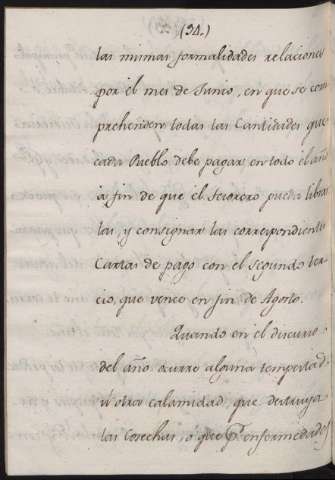 (94.)
las mismas formalidades relaciones
por el mes de Junio, en que se com
prehenden todas las Cantidades que
cada Pueblo debe pagar en todo el año
a fin de que el Tesorero pueda libra
las, y consignar las correspondiente
Cartas de pago con el segundo ter
cio, que vence en fin de Agosto.
Quando en el discurso
del año ocurre alguna tempestad,
ú otra calamidad, que destruya
las Cosechas, o que Pr enfermedades